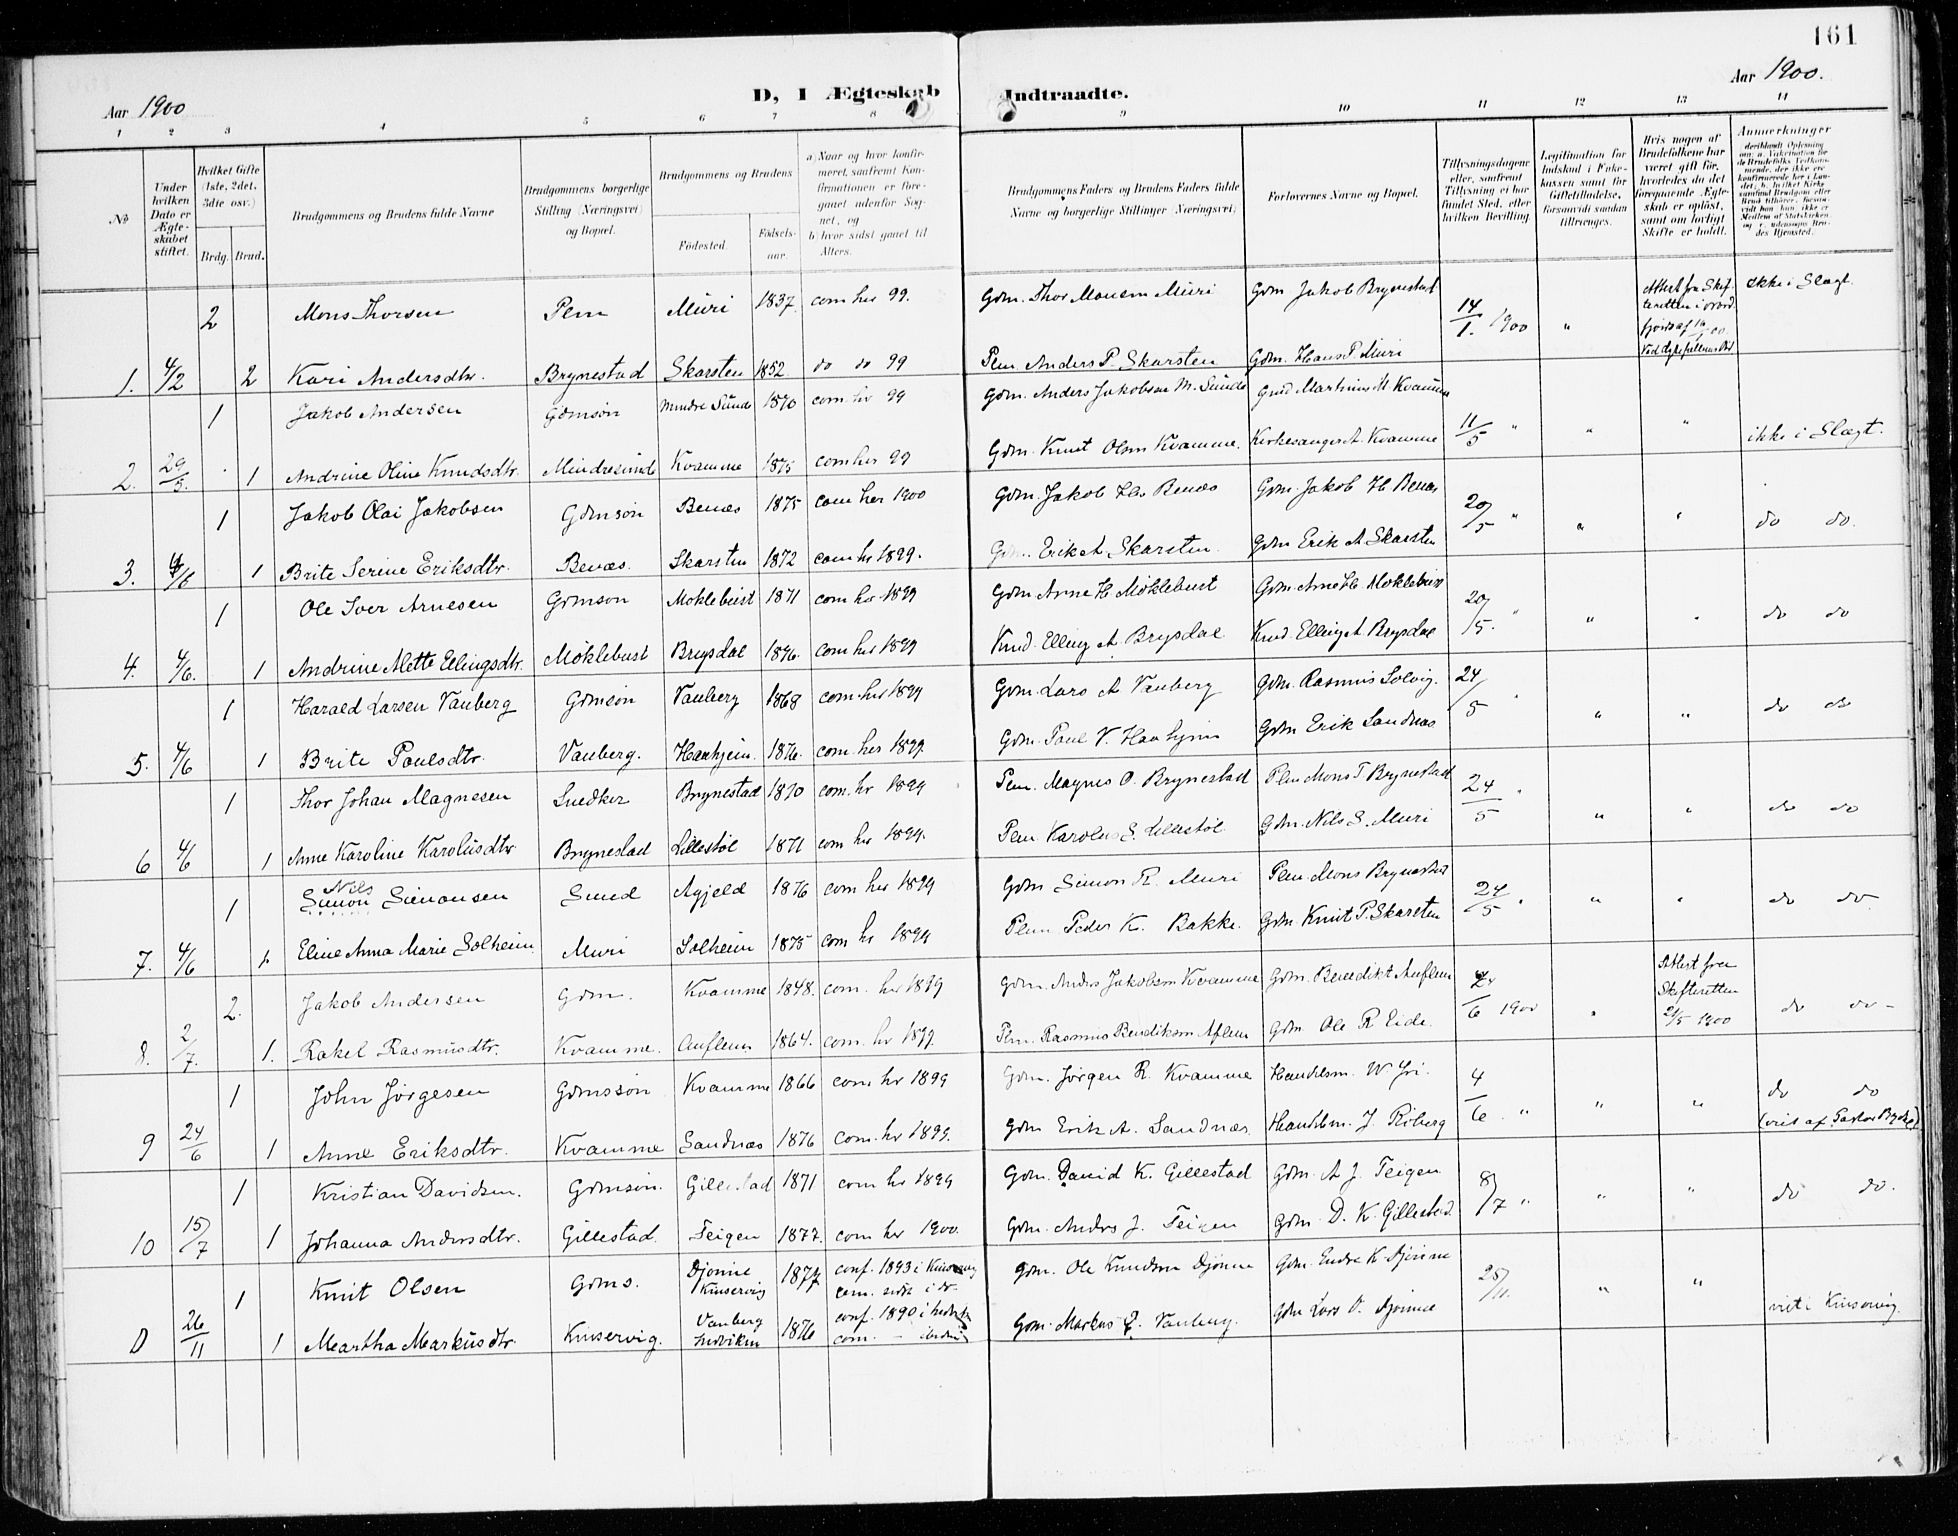 161
Aar 1900
D, I Ægteskab Indtraadte.
Aar 1900.
1 2 3 4 5 6 7 8 9 10 11 12 13 14
No
Under hvilken Dato er Ægteskabet stiftet.
Hvilket Gifte (1ste, 2det, 3die osv.)
Brdg. Brud.
Brudgommens og Brudens fulde Navne
Brudgommens borgerlige Stilling (Næringsvei) og Bopæl.
Brudgommens og Brudens
Fødested. Fødselsaar.
a) Naar og hvor konfirmeret, saafremt Konfirmationen er foregaaet udenfor Sognet, og
b) hvor sidst gaaet til Alters.
Brudgommens Faders og Brudens Faders fulde Navne og borgerlige Stillinger (Næringsvei)
Forlovernes Navne og Bopæl.
Tillysningsdagene eller, saafremt Tillysning ei har fundet Sted, efter hvilken Bevilling.
Legitimation for Indskud i Enkekassen samt for Giftetilladelse, forsaavidt saadan tiltrænges.
Hvis nogen af Brudefolkene har været gift før, hvorledes da det foregaaende Ægteskab er opløst, samt om lovligt Skifte er holdt.
Anmerkninger
2 Mons Thorsen Plm Muri 1837 com her 99. Gdm. Thor Monsen Muri Gdm Jakob Brynestad 14/1. 1900 " Attest fra Skifteretten i Nordfjord af ikke i Slægt.
1. 4/2 2 Kari Andersdtr. Brynestad Skarsten 1852 do do 99 Plm. Anders P. Skarsten Gdm. Hans P. Muri
1 Jakob Andersen Gdmsøn Mindre Sunde 1870 com. her 99 Gdm. Anders Jakobsen M. Sunde Martinus M Kvamme 11/5 " " "
2. 29/5. 1 Andrine Oline Knudsdtr. Mindresunde Kvamme 1875 com her 99 Gdm. Knut Olsen Kvamme. Kirkesanger A. Kvamme ikke i Slægt.
1 Jakob Olai Jakobsen Gdmsøn Benæs 1875 com her 1900 Gdm. Jakob Hs Benæs Gdm. Jakob H Benæs 20/5 " " "
3. 4/6 1 Brite Serine Eriksdtr. Benæs. Skarsten 1872 com her 1899. Gdm. Erik A. Skarsten. Gdm Erik A Skarsten do do.
1 Ole Iver Arnesen Gdmsøn Møklebust 1871 com her 1899 Gdm Arne H Møklebust Gdm. Arne H. Møklebust 20/5. " " "
4. 4/6. 1 Andrine Mette Ellingsdtr. Møklebust Brysdal 1876. com her 1899 Knud. Elling A Brysdal Knud. Elling A Brysdal do do
1 Harald Larsen Vanberg Gdmsøn Vanberg 1868 com. her 1899 Gdm. Lars A Vanberg Gdm. Rasmus Solvig. 24/5 " " "
5. 4/6 1 Brite Poulsdtr. Vanberg. Haahjem. 1876. com. her 1899. Gdm. Poul V. Haahjem Gdm Erik Sandnæs do do
1 Thor Johan Magnesen Snedker Brynestad 1870 com. her 1899 Plm. Magnus O. Brynestad Plm Mons T Brynestad 24/5 " " "
6 4/6 1 Anne Karoline Karolusdtr Brynestad Lillestøl 1871 com her 1899. Plm Karolus S Lillestøl Gdm. Nils S. Muri do do
1 Nils Simon Simonsen Smed Agjeld 1876 com her 1899 Gdm Simon R. Muri Plm. Mons Brynestad 24/5 " " "
7. 4/6 1. Eline Anna Marie Solheim Muri Solheim 1875 com her 1899 Plm Peder K. Bakke. Gdm. Knut P. Skarsten do do
2. Jakob Andersen Gdm. Kvamme 1848. com. her 1899 Gdm. Anders Jakobsen Kvamme Gdm. Benedikt Auflem 4/6 1900 " Attest fra Skifteretten 21/5 1900 do do
8. 2/7. 1. Rakel Rasmusdtr. Kvamme. Auflem 1864. com. her 1899. Plm. Rasmus Bendiksen Aflem Gdm. Ole R Eide.
1 John Jørgesen Gdmssøn Kvamme 1866 com her 1899 Gdm. Jørgen R. Kvamme Handelsm. W. Yri. 4/6 " " " do do
9 24/6 1 Anne Eriksdtr. Kvamme Sandnæs 1876 com. her 1899. Gdm Erik A. Sandnæs. Handelsm. J. Roberg (viet af Pastor
1 Kristian Davidsen. Gdmsøn. Gillestad 1871 com her 1899 Gdm. David K. Gillestad Gdm. A J. Teigen 8/7 " " "
10 15/7 1 Johanna Andersdtr. Gillestad. Teigen 1877. com her 1900. Gdm. Anders J. Teigen Gdm. D. K. Gillestad. do do.
1 Knut Olsen Gdms. Djønne Kinservig 1877 conf. 1893 i Kinservig com. sidst i do. Gdm. Ole Knudsen Djønne Gdm. Endre K. Djønne 25/11. " "
D 26/11 1 Martha Markusdtr. Kinservig. Vanberg Indviken 1876 conf. 1890 i com. Gdm. Markus Vanberg. Gdm Lars O. Djønne viet i Kinservig.